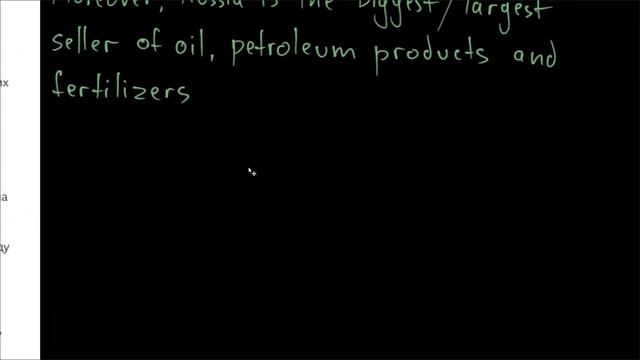 Moreover, Russia is the biggest/largest
seller of oil, petroleum products and
fertilizers
их
на
ду